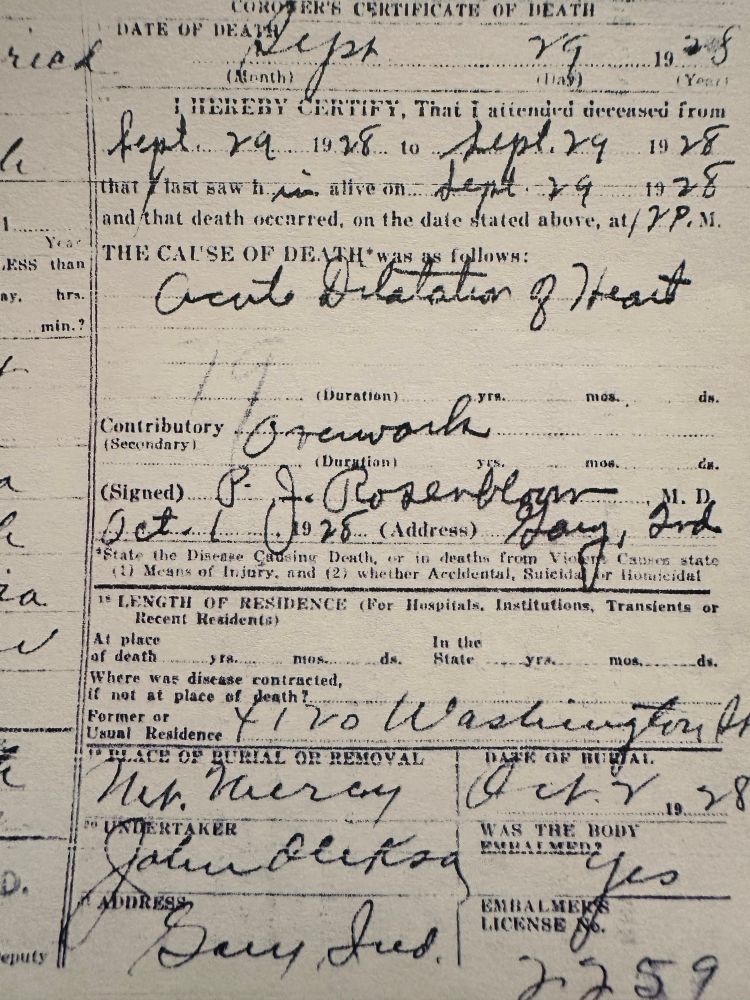 CORONER'S CERTIFICATE OF DEATH
DATE OF DEATH Sept 29 1928
(Month) (Day) (Year)
I HEREBY CERTIFY, That I attended deceased from
Sept. 29 1928 to Sept. 29 1928
that I last saw him alive on Sept. 29 1928
and that death occurred, on the date stated above, at 12 P. M.
THE CAUSE OF DEATH* was as follows:
Acute Dilatation of Heart
(Duration) yrs. mos. ds.
Contributory Overwork
(Secondary)
(Duration) yrs. mos. ds.
(Signed) P. J. Rosenbloom M. D.
Oct. 1 1928 (Address) Gary, Ind
*State the Disease Causing Death, or in deaths from Violent Causes state
(1) Means of Injury, and (2) whether Accidental, Suicidal or Homicidal
18 LENGTH OF RESIDENCE (For Hospitals, Institutions, Transients or
Recent Residents)
At place In the
of death yrs. mos. ds. State yrs. mos. ds.
Where was disease contracted,
if not at place of death?
Former or
Usual Residence 4120 Washington St
19 PLACE OF BURIAL OR REMOVAL DATE OF BURIAL
Mt. Mercy Oct. 2 1928
20 UNDERTAKER WAS THE BODY
EMBALMED?
John Oleksa yes
21 ADDRESS EMBALMER'S
LICENSE No.
Gary, Ind. 2259
rick
Year
LESS than
ay, hrs.
min.?
D.
eputy